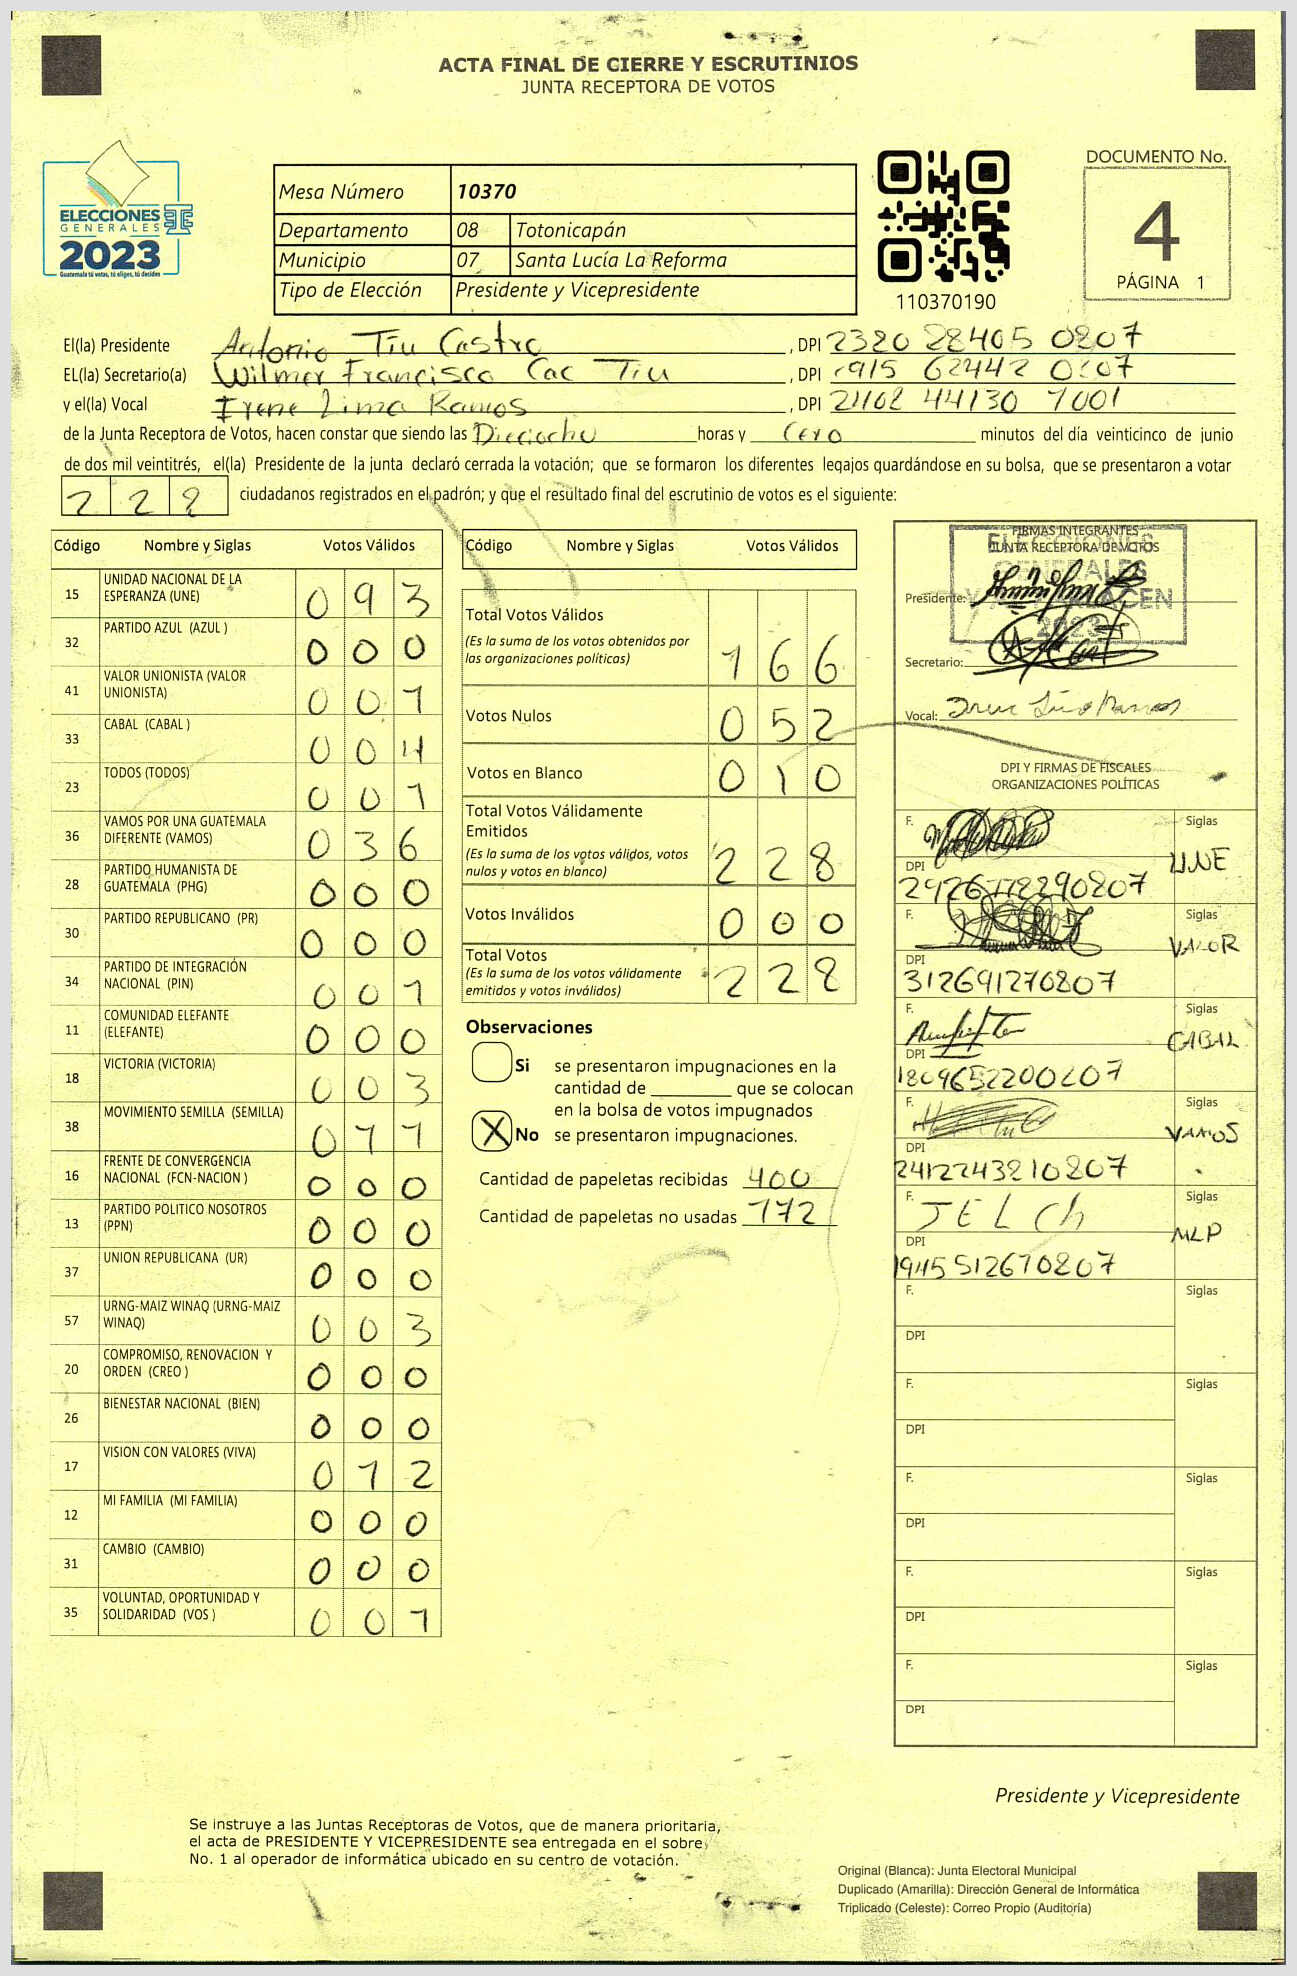 ACTA FINAL DE CIERRE Y ESCRUTINIOS
JUNTA RECEPTORA DE VOTOS
ELECCIONES
GENERALES
2023
Guatemala tú votas, tú eliges, tú decides
Mesa Número 10370
Departamento 08 Totonicapán
Municipio 07 Santa Lucía La Reforma
Tipo de Elección Presidente y Vicepresidente
110370190
DOCUMENTO No.
4
PÁGINA 1
El(la) Presidente Antonio Tiu Castro, DPI 2320 28405 0807
EL(la) Secretario(a) Wilmer Francisco Cac Tiu, DPI 1915 62442 0807
y el(la) Vocal Irene Lima Ramos, DPI 44130
de la Junta Receptora de Votos, hacen constar que siendo las Dieciocho horas y Cero minutos del día veinticinco de junio
de dos mil veintitrés, el(la) Presidente de la junta declaró cerrada la votación; que se formaron los diferentes legajos guardándose en su bolsa, que se presentaron a votar
228 ciudadanos registrados en el padrón; y que el resultado final del escrutinio de votos es el siguiente:
Código Nombre y Siglas Votos Válidos
15 UNIDAD NACIONAL DE LA ESPERANZA (UNE) 0 9 3
32 PARTIDO AZUL (AZUL ) 0 0 0
41 VALOR UNIONISTA (VALOR UNIONISTA) 0 0 1
33 CABAL (CABAL ) 0 0 4
23 TODOS (TODOS) 0 0 1
36 VAMOS POR UNA GUATEMALA DIFERENTE (VAMOS) 0 3 6
28 PARTIDO HUMANISTA DE GUATEMALA (PHG) 0 0 0
30 PARTIDO REPUBLICANO (PR) 0 0 0
34 PARTIDO DE INTEGRACIÓN NACIONAL (PIN) 0 0 1
11 COMUNIDAD ELEFANTE (ELEFANTE) 0 0 0
18 VICTORIA (VICTORIA) 0 0 3
38 MOVIMIENTO SEMILLA (SEMILLA) 0 1 1
16 FRENTE DE CONVERGENCIA NACIONAL (FCN-NACION ) 0 0 0
13 PARTIDO POLITICO NOSOTROS (PPN) 0 0 0
37 UNION REPUBLICANA (UR) 0 0 0
57 URNG-MAIZ WINAQ (URNG-MAIZ WINAQ) 0 0 3
20 COMPROMISO, RENOVACION Y ORDEN (CREO ) 0 0 0
26 BIENESTAR NACIONAL (BIEN) 0 0 0
17 VISION CON VALORES (VIVA) 0 1 2
12 MI FAMILIA (MI FAMILIA) 0 0 0
31 CAMBIO (CAMBIO) 0 0 0
35 VOLUNTAD, OPORTUNIDAD Y SOLIDARIDAD (VOS ) 0 0 1
Código Nombre y Siglas Votos Válidos
Total Votos Válidos
(Es la suma de los votos obtenidos por
las organizaciones políticas) 1 6 6
Votos Nulos 0 5 2
Votos en Blanco 0 1 0
Total Votos Válidamente
Emitidos
(Es la suma de los votos válidos, votos
nulos y votos en blanco) 2 2 8
Votos Inválidos 0 0 0
Total Votos
(Es la suma de los votos válidamente
emitidos y votos inválidos) 2 2 8
Observaciones
Si se presentaron impugnaciones en la
cantidad de ________ que se colocan
en la bolsa de votos impugnados
X No se presentaron impugnaciones.
Cantidad de papeletas recibidas 400
Cantidad de papeletas no usadas 172
FIRMAS INTEGRANTES
JUNTA RECEPTORA DE VOTOS
ELECCIONES
GENERALES
2023
Presidente:
Secretario:
Vocal: Irene Lima Ramos
DPI Y FIRMAS DE FISCALES
ORGANIZACIONES POLÍTICAS
F. Siglas
DPI UNE
F. Siglas
DPI VALOR
312691270807
F. Siglas
DPI CABAL
1809652200807
F. Siglas
DPI VAMOS
2412243210807
F. JELCh Siglas
DPI MLP
1945512670807
F. Siglas
DPI
F. Siglas
DPI
F. Siglas
DPI
F. Siglas
DPI
F. Siglas
DPI
Presidente y Vicepresidente
Se instruye a las Juntas Receptoras de Votos, que de manera prioritaria,
el acta de PRESIDENTE Y VICEPRESIDENTE sea entregada en el sobre
No. 1 al operador de informática ubicado en su centro de votación.
Original (Blanca): Junta Electoral Municipal
Duplicado (Amarilla): Dirección General de Informática
Triplicado (Celeste): Correo Propio (Auditoría)